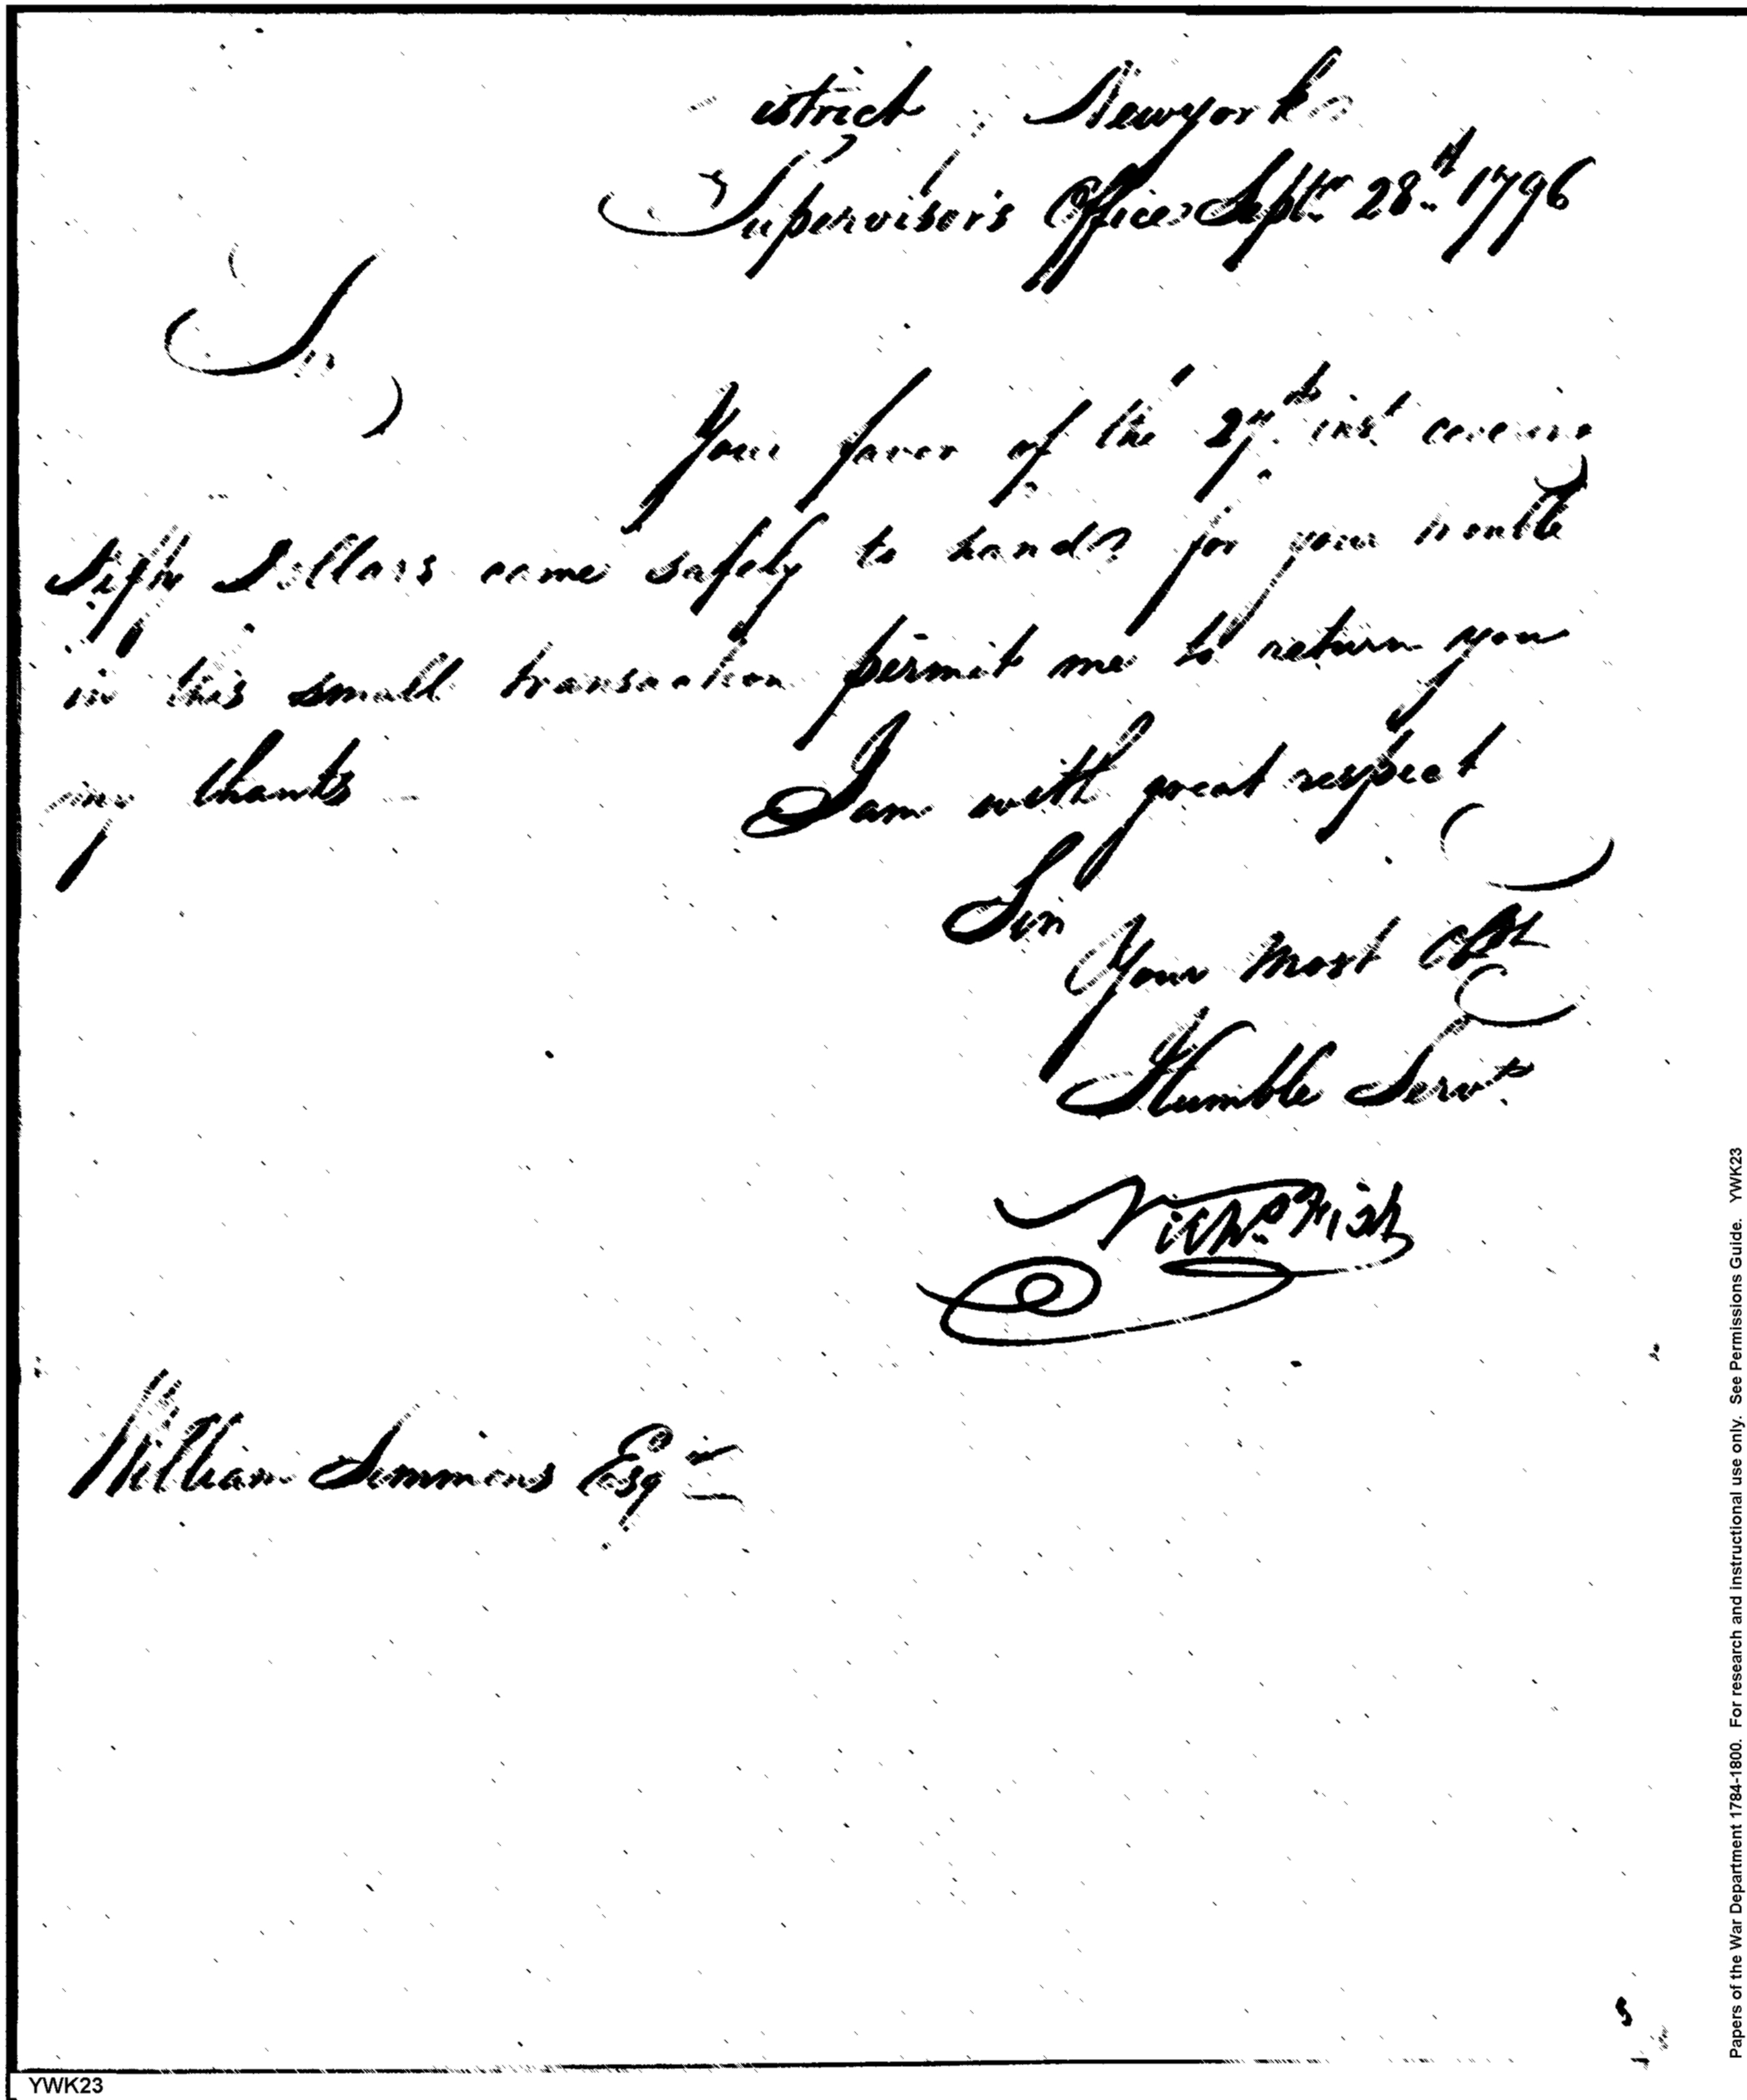 istrict Newyork
Supervisor's Office Septr. 28th 1796
Sir
Your favor of the inst covering
Dollars came safely to hand for your trouble
in this small transaction permit me to return you
my thanks
I am with great respect
Sir
Your most Obt
Humble Servt.
Nichs. Fish
William Simmons Esqr
YWK23
Papers of the War Department 1784-1800. For research and instructional use only. See Permissions Guide. YWK23